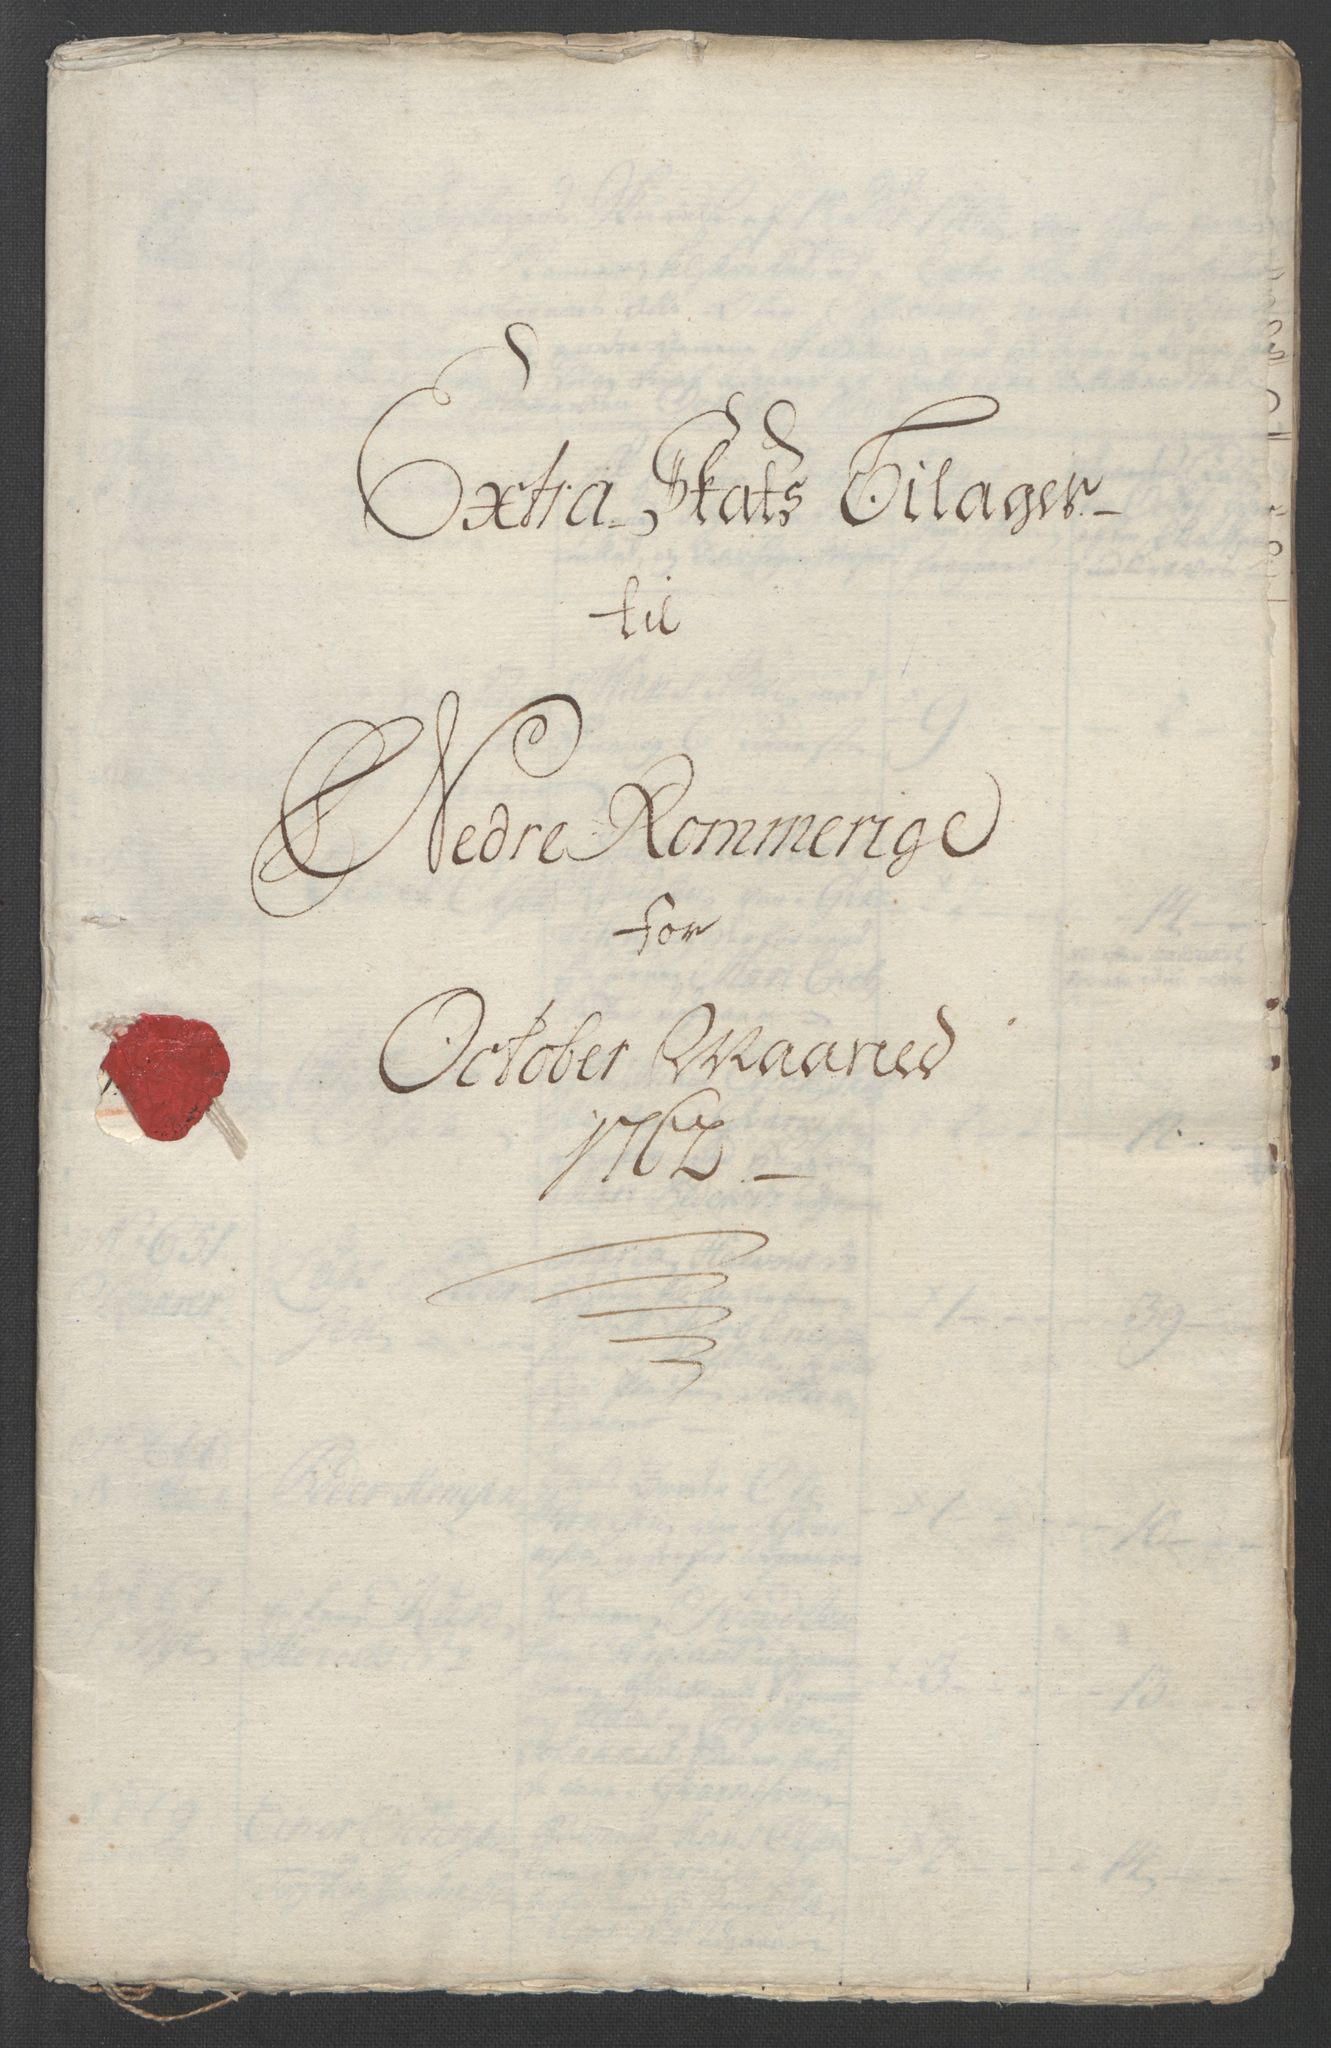 Extra Skats Tilager
til
Nedre Rommerige
for
October Maaned
1762